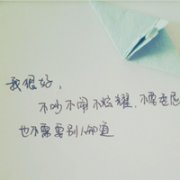 我很好，
不吵不闹不炫耀，不要委屈
也不需要别人知道